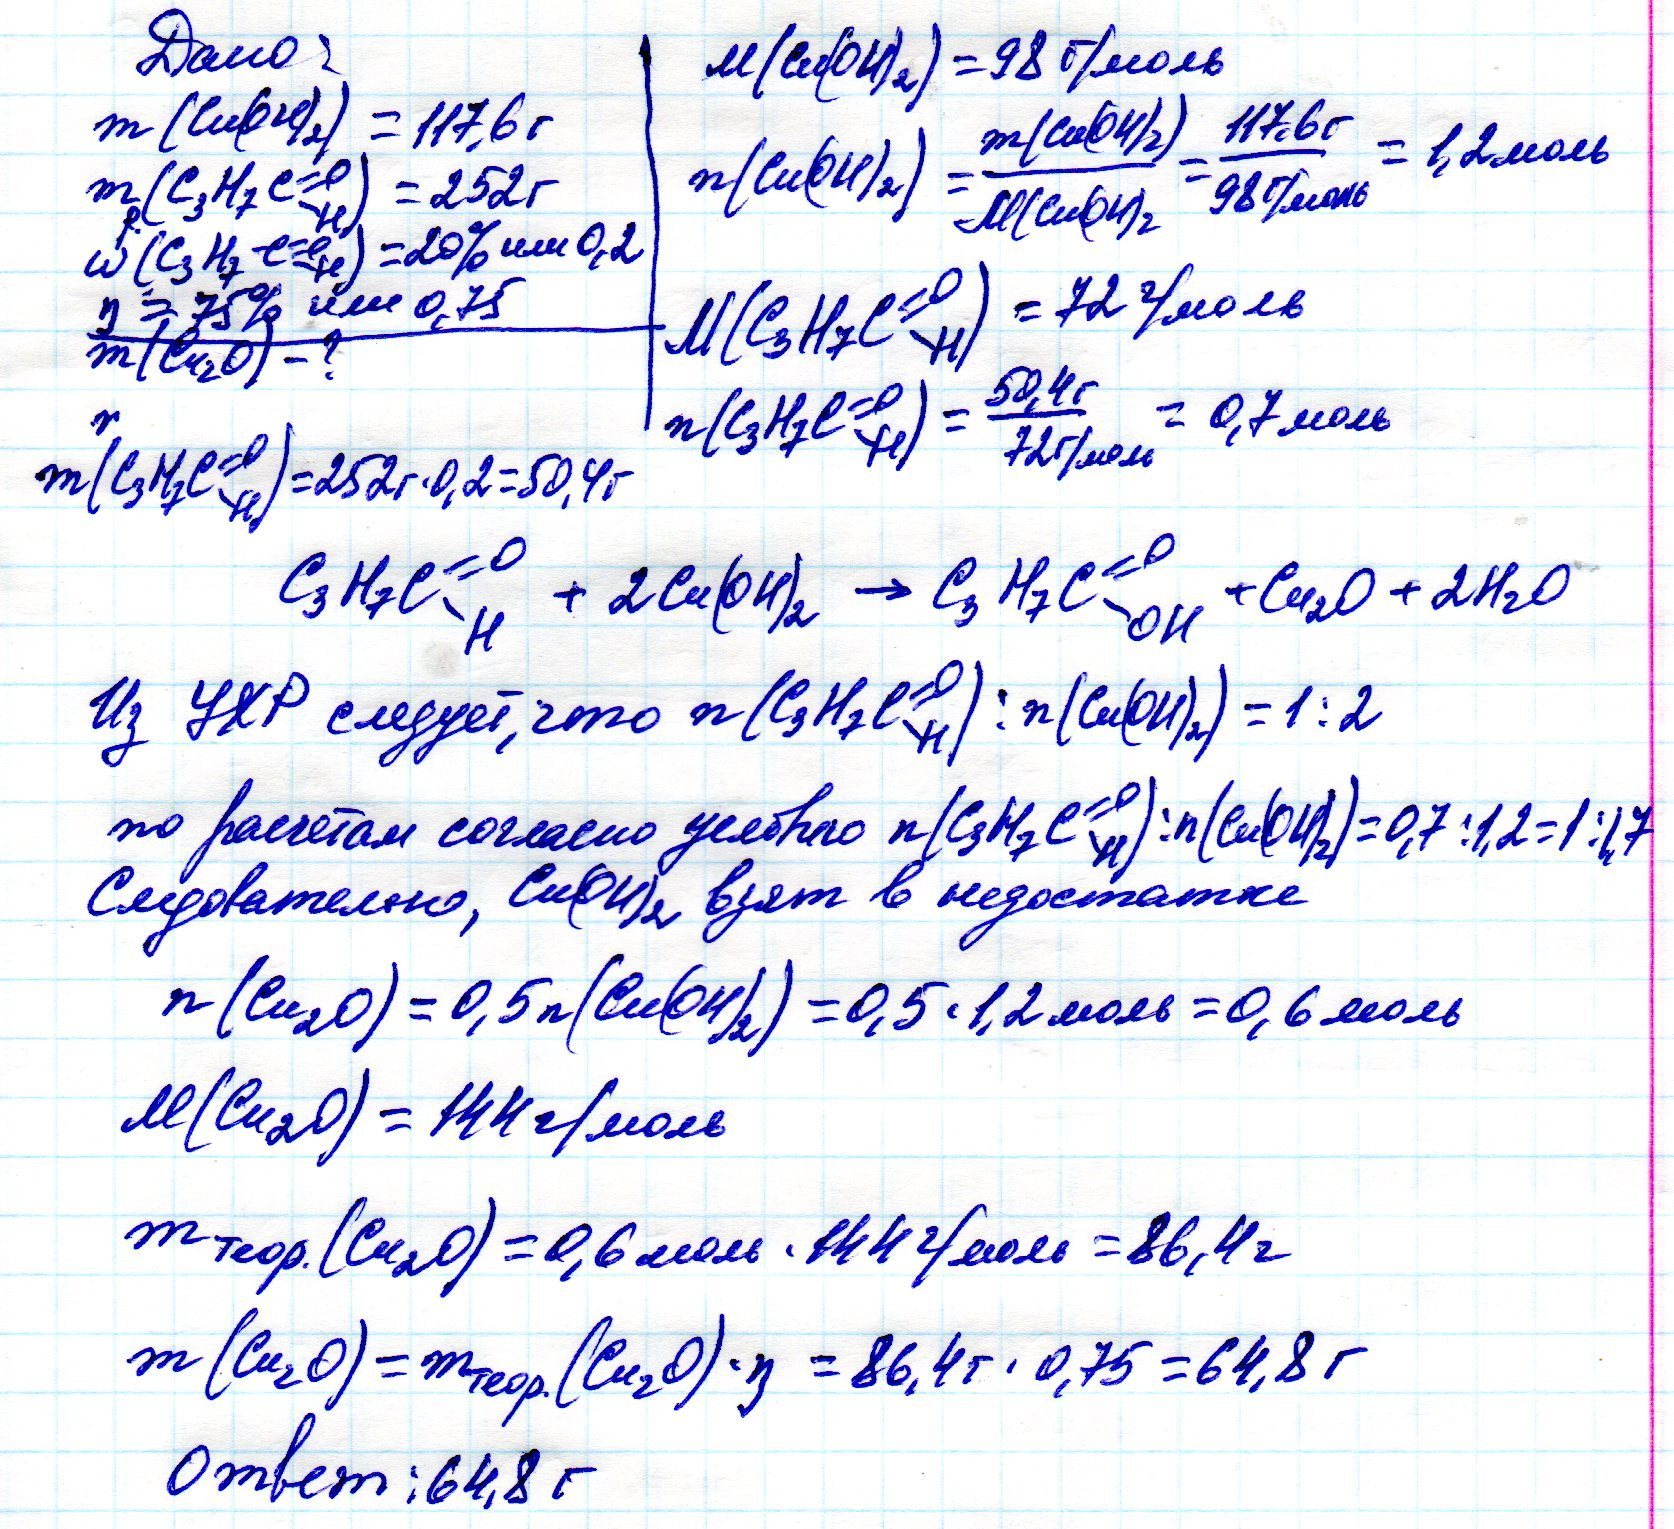 Дано:
m(Cu(OH)₂) = 117,6 г
mр.(C₃H₇C=O–H) = 252 г
ω(C₃H₇-C=O–H) = 20% или 0,2
η = 75% или 0,75
m(Cu₂O) – ?
m(C₃H₇C=O–H) = 252г·0,2 = 50,4г
M(Cu(OH)₂) = 98 г/моль
n(Cu(OH)₂) = m(Cu(OH)₂)/M(Cu(OH)₂ = 117,6г/98г/моль = 1,2 моль
M(C₃H₇C=O–H) = 72 г/моль
n(C₃H₇C=O–H) = 50,4г/72г/моль = 0,7 моль
C₃H₇C=O–H + 2Cu(OH)₂ → C₃H₇C=O–OH + Cu₂O + 2H₂O
Из УХР следует, что n(C₃H₇C=O–H) : n(Cu(OH)₂) = 1 : 2
по расчетам согласно n(C₃H₇C=O–H) : n(Cu(OH)₂) = 0,7 : 1,2 = 1 : 1,7
Следовательно, Cu(OH)₂ взят в недостатке
n(Cu₂O) = 0,5n(Cu(OH)₂) = 0,5·1,2 моль = 0,6 моль
M(Cu₂O) = 144 г/моль
mтеор.(Cu₂O) = 0,6 моль · 144 г/моль = 86,4 г
m(Cu₂O) = mтеор.(Cu₂O)·η = 86,4г · 0,75 = 64,8 г
Ответ: 64,8 г